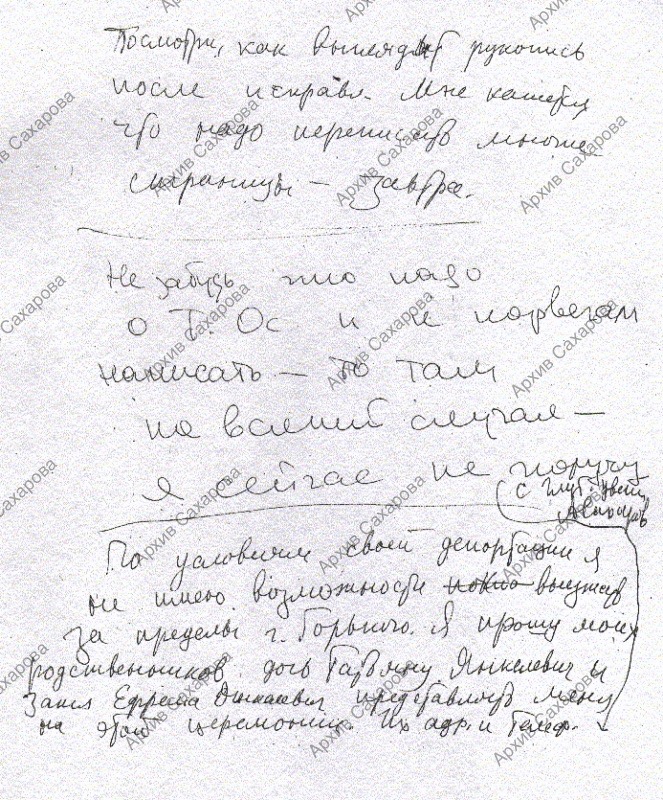 Посмотри, как выглядит рукопись
после исправл. Мне кажется
что надо переписать многие
страницы — завтра.
Не забудь что надо
о Т. Ос и к норвегам
написать — то там
на всякий случай —
я сейчас не
(с глуб. уваж.
По условиям своей депортации я
не имею возможности выезжать
за пределы г. Горького. Я прошу моих
родственников дочь Татьяну Янкелевич и
зятя Ефрема Янкелевич представлять меня
на этой церемонии. Их адр. и телеф.
Архив Сахарова